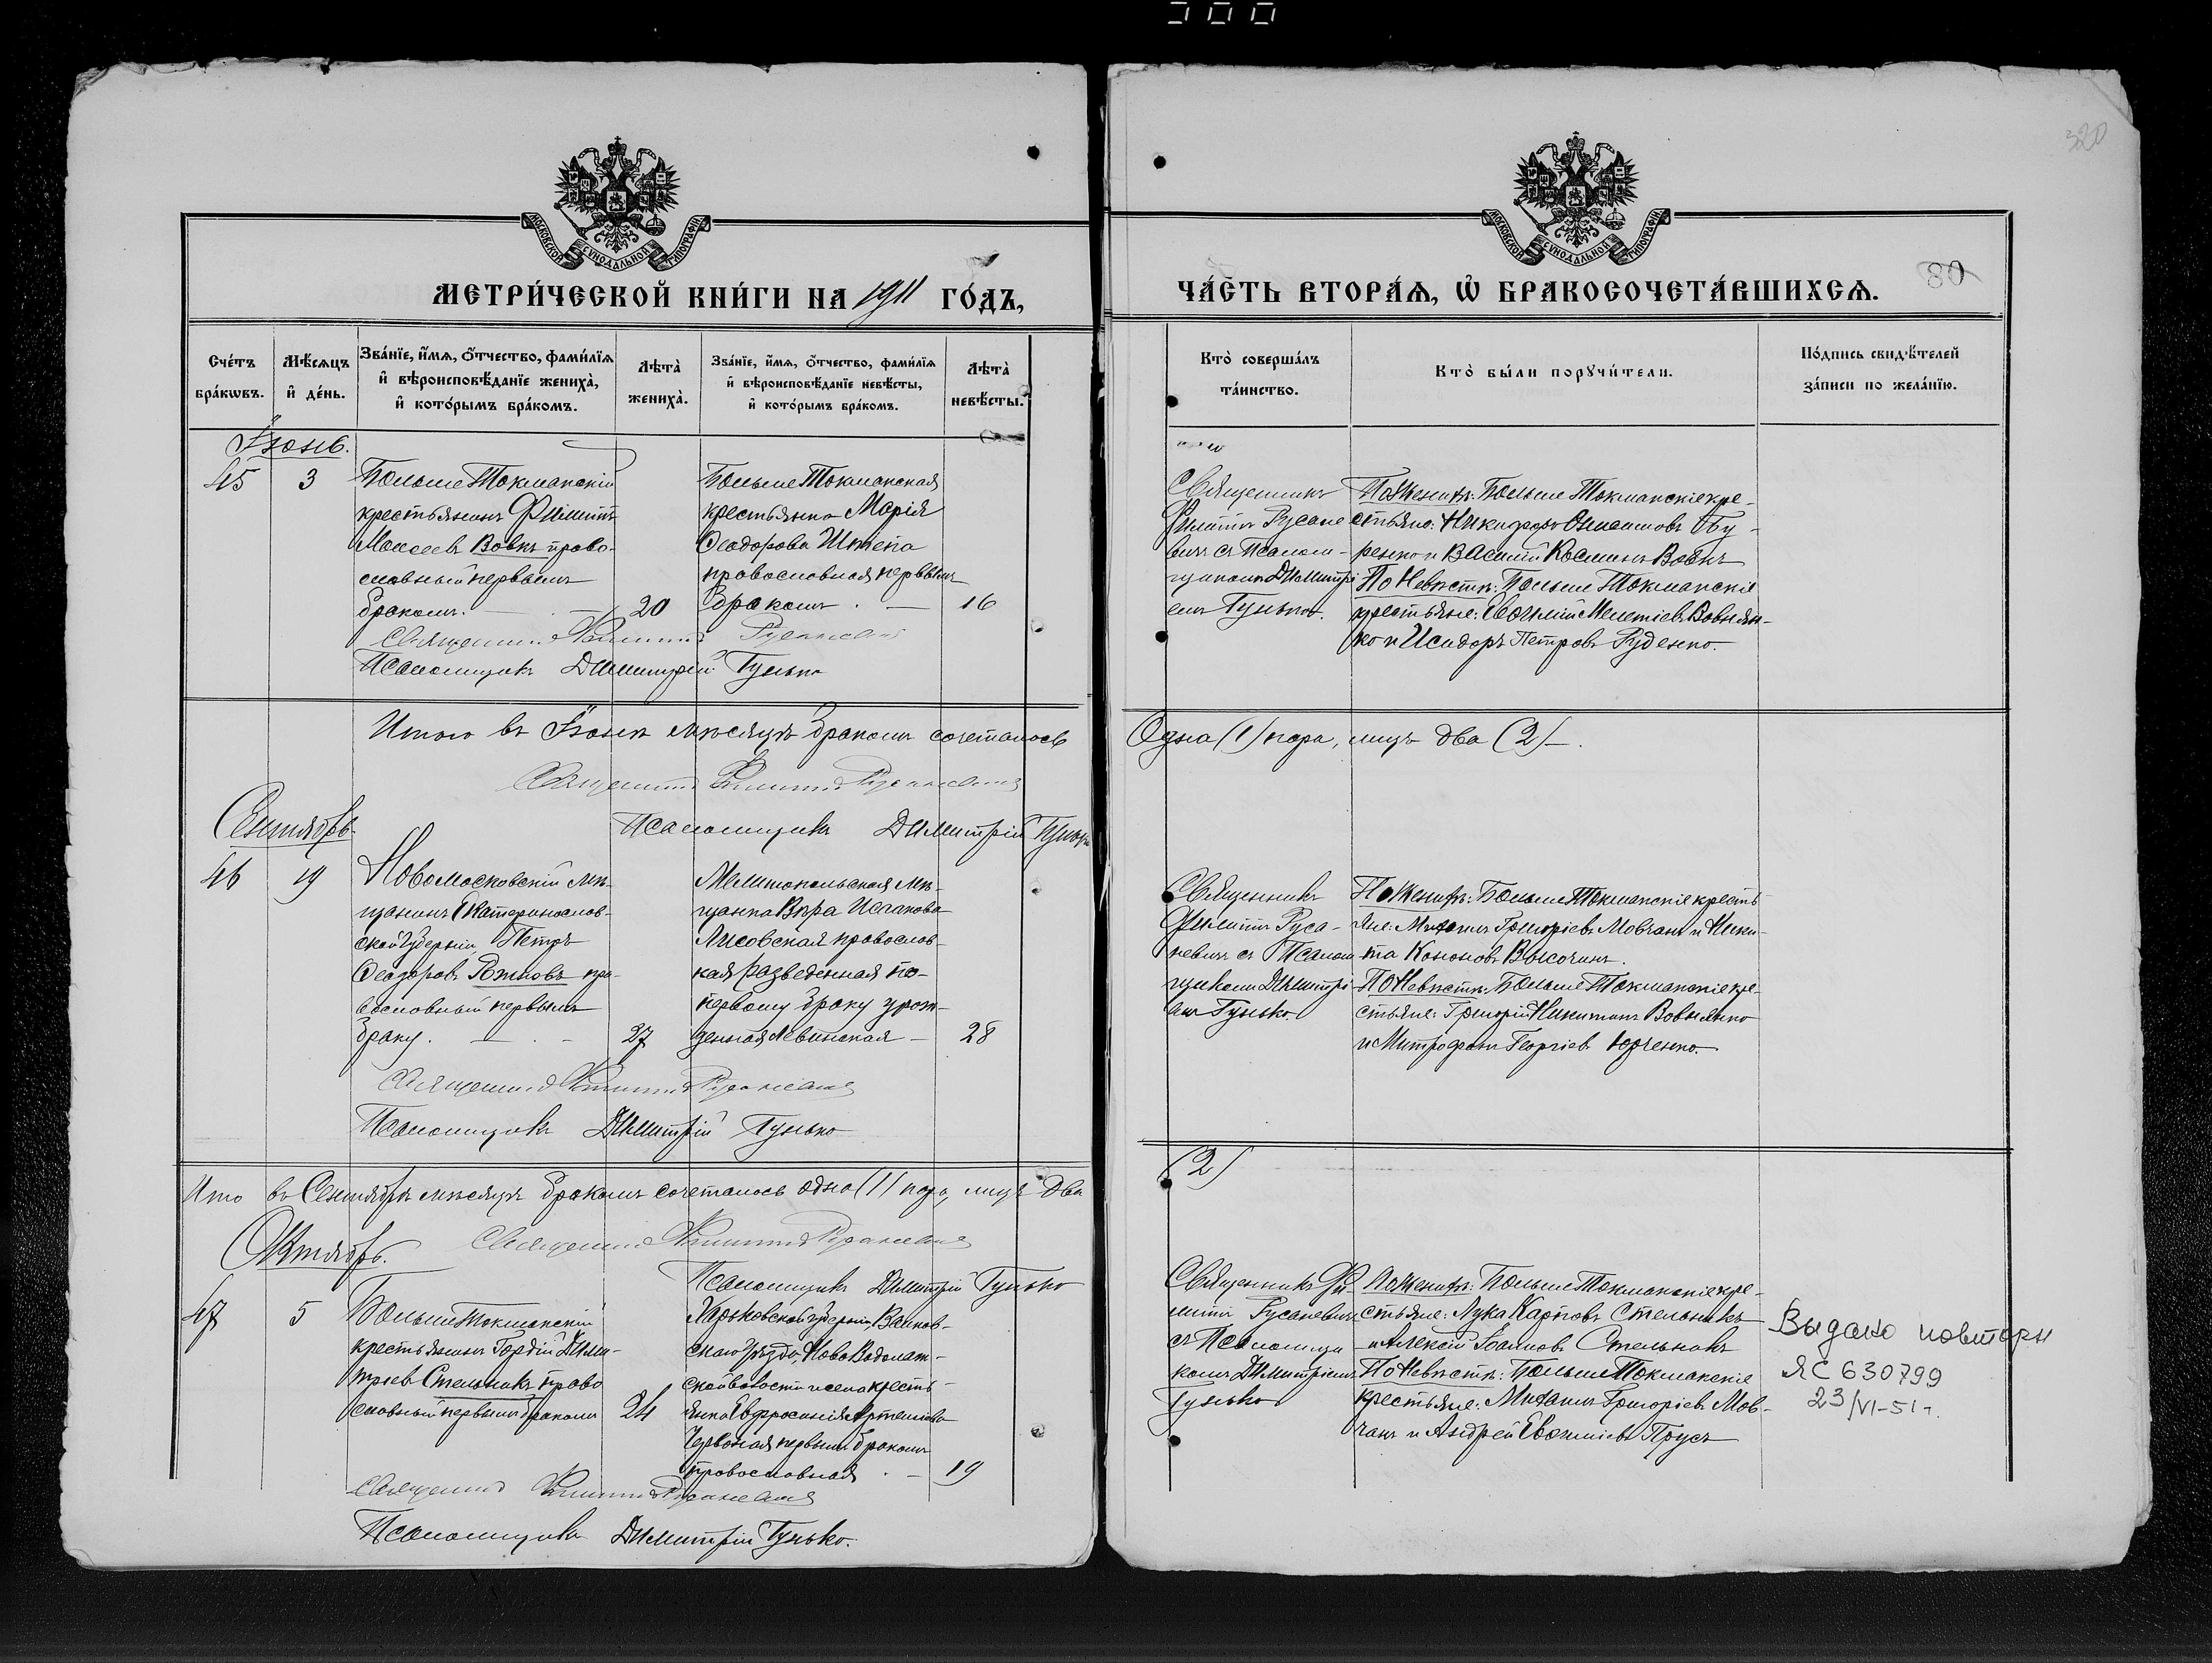 320
МОСКОВСКОЙ СѴНОДАЛЬНОЙ ТИПОГРАФІИ
МЕТРИ́ЧЕСКОЙ КНИ́ГИ НА 1911 ГО́ДЪ,
Счéтъ бра́кѡвъ.
Мѣ́сяцъ и҆ де́нь.
Зва́нїе, и҆́мѧ, ѻ҆́тчество, фами́лїѧ
и҆ вѣроисповѣ́данїе жениха̀,
и҆ кото́рымъ бра́комъ.
Лѣта̀ жениха̀.
Зва́нїе, и҆́мѧ, ѻ҆́тчество, фами́лїѧ
и҆ вѣроисповѣ́данїе невѣ́сты,
и҆ кото́рымъ бра́комъ.
Лѣта̀ невѣ́сты.
Іюнь.
45
3
Больше Токмакскій
крестьянинъ Филиппъ
Моисеевъ Вовкъ право-
славный первымъ
бракомъ.
20
Больше Токмакская
крестьянка Марія
Ѳеодорова Штепа
православная первымъ
бракомъ.
16
Священникъ Филиппъ Русаневичъ
Псаломщикъ Димитрій Гунько
Итого въ Іюнѣ мѣсяцѣ бракомъ сочеталось
Священникъ Филиппъ Русаневичъ
Псаломщикъ Димитрій Гунько
Сентябрь.
46
19
Новомосковскій мѣ-
щанинъ Екатеринослав-
ской губерніи Петръ
Ѳеодоровъ пра-
вославный первымъ
браку.
27
Мелитопольская мѣ-
щанка Вѣра Исаакова
Лисовская православ-
ная разведенная по
первому браку урож-
денная Левинская
28
Священникъ Филиппъ Русаневичъ
Псаломщикъ Димитрій Гунько
Итого въ Сентябрѣ мѣсяцѣ бракомъ сочеталось одна (1) пара, лицъ два
Священникъ Филиппъ Русаневичъ
Псаломщикъ Димитрій Гунько
Октябрь.
47
5
Больше Токмакскій
крестьянинъ Гордій Дими-
тріевъ Стельникъ право
славный первымъ бракомъ
24
Харьковской губерніи, Валков-
скаго уѣзда, Ново Водолаж-
ской волости и села кресть-
янка Евфросинія Артеміева
Червоная первымъ бракомъ
православная
19
Священникъ Филиппъ Русаневичъ
Псаломщикъ Димитрій Гунько.
МОСКОВСКОЙ СѴНОДАЛЬНОЙ ТИПОГРАФІИ
ЧА́СТЬ ВТОРА́Ѧ, Ѡ҆ БРАКОСОЧЕТА́ВШИХСѦ.
80
Кто̀ соверша́лъ
та́инство.
Кто̀ бы́ли порꙋчи́тели.
По́дпись свидѣ́телей
за́писи по жела́нїю.
Священникъ
Филиппъ Русане
вичъ съ Псалом-
щикомъ Димитрі
емъ Гунько.
По Женихѣ: Больше Токмакскіе кре-
стьяне: Никифоръ Бу-
ренко и Василій Косминъ Вовкъ
По Невѣстѣ: Больше Токмакскіе
крестьяне: Мелетіевъ Вовнян-
ко и Исидоръ Петровъ Руденко.
Одна (1) пара, лицъ два (2).
Священникъ
Филиппъ Руса-
невичъ съ Псалом
щикомъ Димитрі-
емъ Гунько.
По Женихѣ: Больше Токмакскіе кресть
яне: Михаилъ Григоріевъ Мовчанъ и Ники-
та Кононовъ Высочинъ.
По Невѣстѣ: Больше Токмакскіе кре-
стьяне: Григорій Никитинъ Вовнянко
и Митрофанъ Георгіевъ Юрченко.
(2)
Священникъ Фи-
липпъ Русаневичъ
съ Псаломщи
комъ Димитріемъ
Гунько
По Женихѣ: Больше Токмакскіе кре-
стьяне: Лука Карповъ Стельникъ
и Алексій Іоанновъ Стельникъ
По Невѣстѣ: Больше Токмакскіе
крестьяне: Михаилъ Григоріевъ Мов-
чанъ и Андрей Прусъ
Выдано повторн
ЯС 630799
23/VI-51 г.